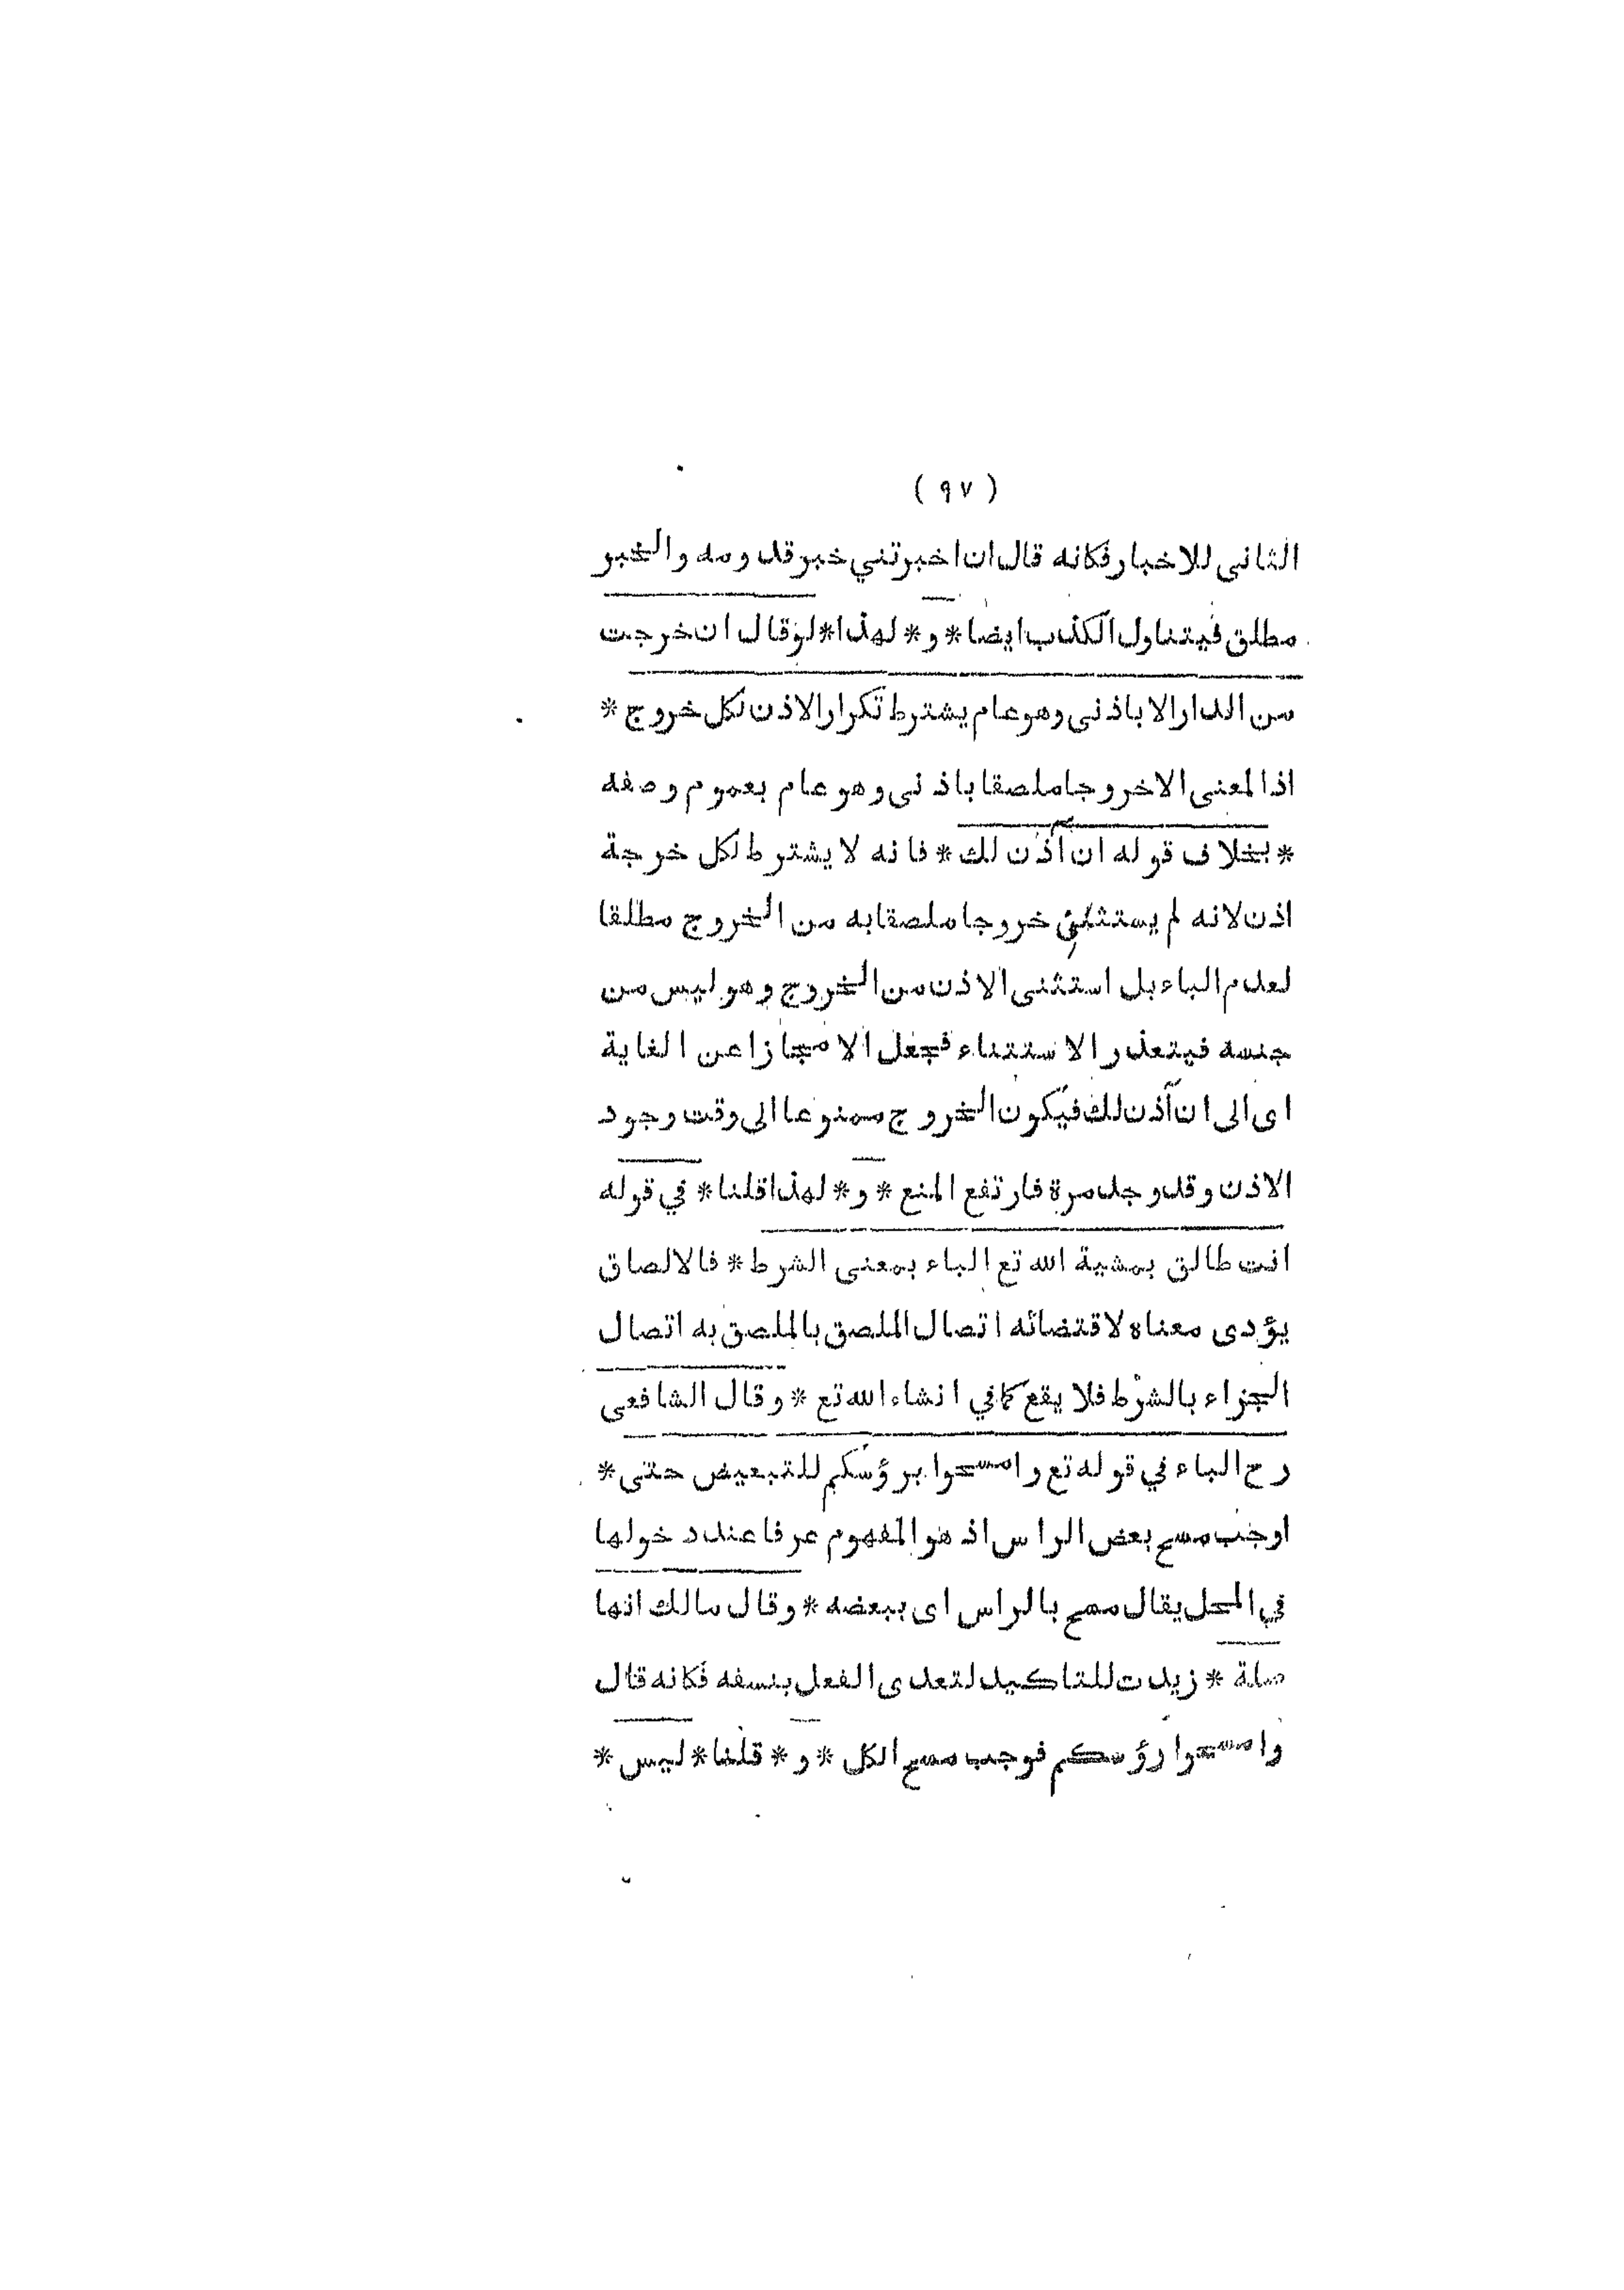 ( ٩٧ )
الثانى للاخبار فكانه قال ان اخبرتني خبر قدومه والخبر
مطلق فيتناول الكذب ايضا * و * لهذا * لو قال ان خرجت
من الدار الا باذنى وهو عام يشترط تكرار الاذن لكل خروج *
اذ المعنى الا خروجا ملصقا باذنى وهو عام بعموم وصفه
* بخلاف قوله ان آذن لك * فانه لا يشترط لكل خرجة
اذن لانه لم يستثن خروجا ملصقا به من الخروج مطلقا
لعدم الباء بل استثنى الاذن من الخروج وهو ليس من
جنسه فيتعذر الاستتناء فجعل الا مجازا عن الغاية
اى الى ان آذن لك فيكون الخروج ممنوعا الى وقت وجود
الاذن وقد وجد مرة فارتفع المنع * و * لهذا قلنا * في قوله
انت طالق بمشية الله تع الباء بمعنى الشرط * فالالصاق
يؤدى معناه لاقتضائه اتصال الملصق بالملصق به اتصال
الجزاء بالشرط فلا يقع كما في انشاء الله تع * وقال الشافعى
رح الباء في قوله تع وامسحوا برؤسكم للتبعيض حتى *
اوجب مسح بعض الراس اذ هو المفهوم عرفا عند دخولها
في المحل يقال مسح بالراس اى ببعضه * وقال مالك انها
صلة * زيدت للتاكيد لتعدى الفعل بنسفه فكانه قال
وامسحوا رؤسكم فوجب مسح الكل * و * قلنا * ليس *